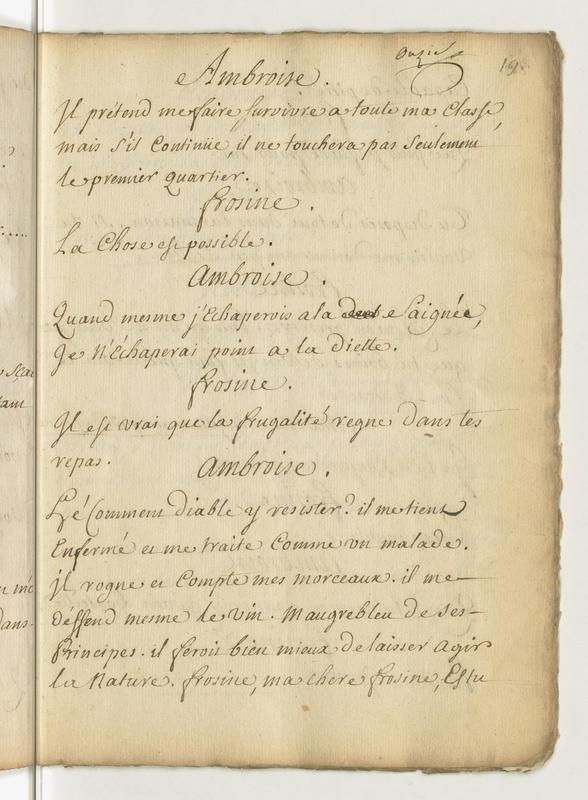 19.
Ambroise.
Il prétend me faire survivre a toute ma Classe,
mais s'il Continüe, il ne touchera pas seulement
le premier quartier.
frosine.
La Chose est possible.
Ambroise.
Quand mesme j'Echaperois a la Saignée,
Je N'Échaperai point a la Diette.
frosine.
Il est vrai que la frugalité regne Dans tes
repas.
Ambroise.
hé Comment Diable y resister? il me tient
Enfermé et me traite Comme un malade.
il rogne et Compte mes morceaux. il me
deffend mesme le vin. Maugrebleu de ses
Principes. il ferois bien mieux de laisser agir
la Nature. frosine, ma chere frosine, Estu